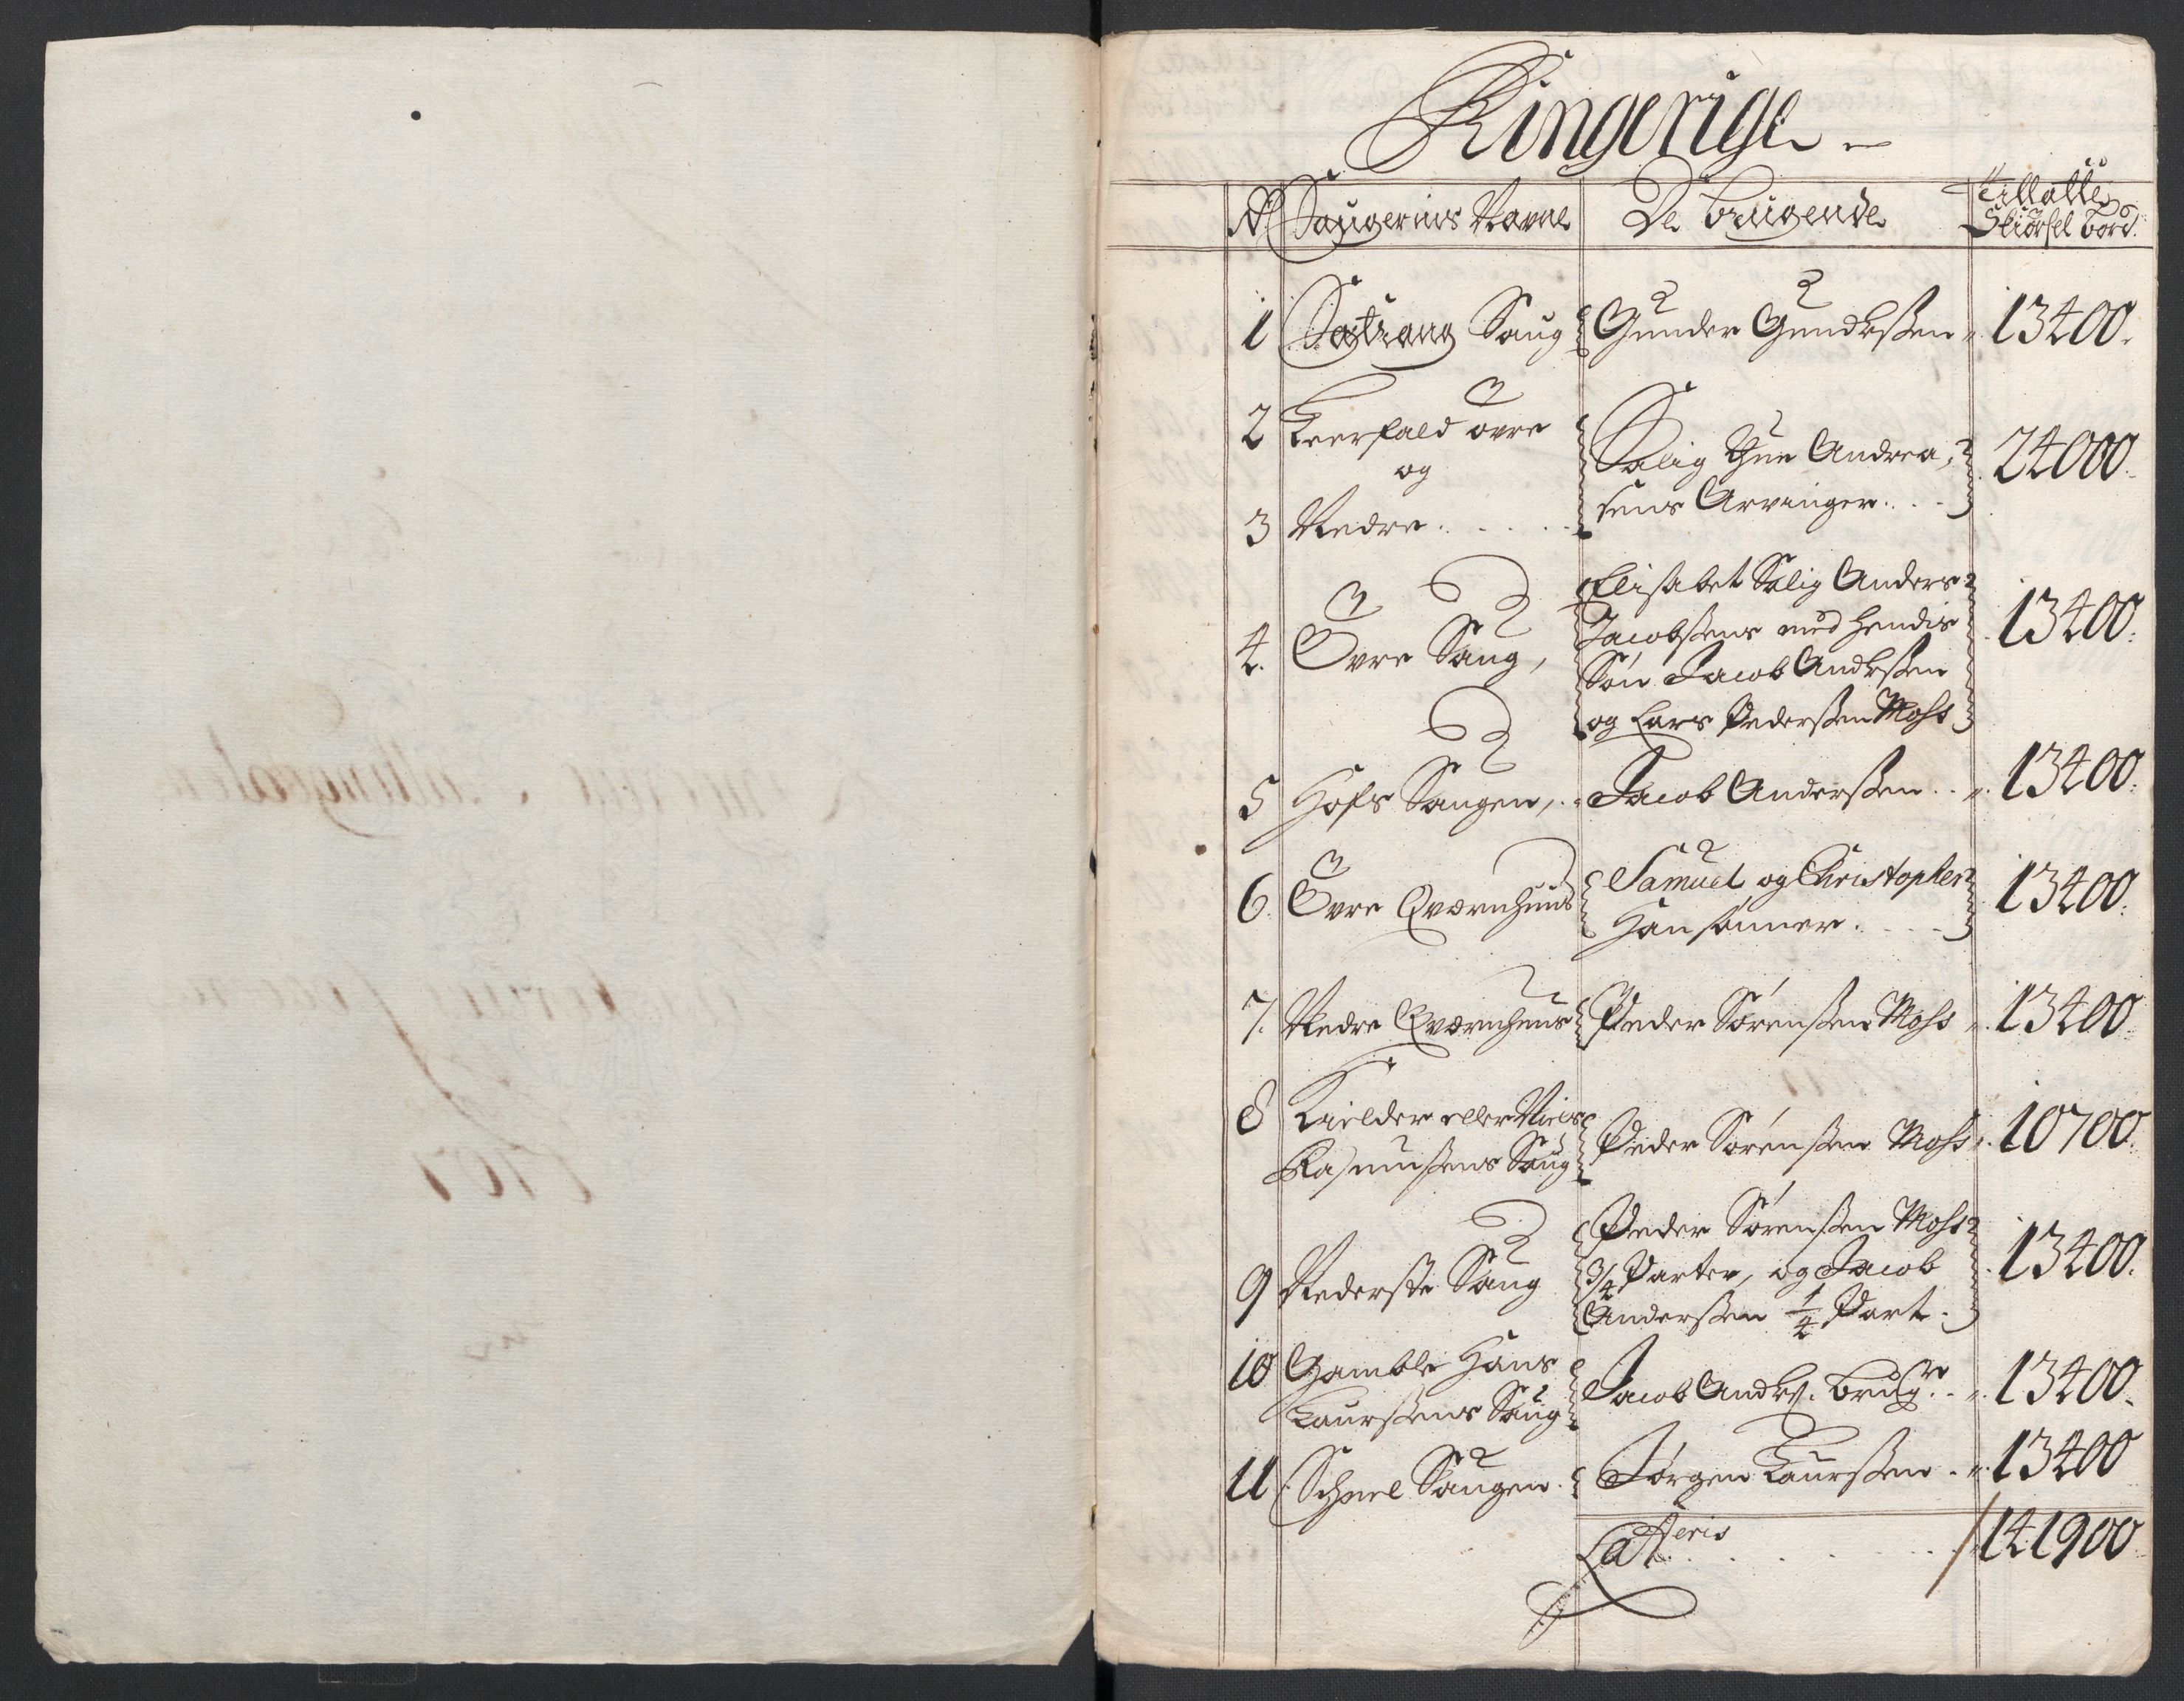 Ringerige
No Saugernes Navne De brugende Tilladte Skiørsel bord.
1 Satrang Saug Gunder Gundersen 13400.
2 Leerfald øvre
og
3 Nedre. Salig Thue Andrea,
sens Arvinger. 24000.
4. Øvre Saug, Elisabet Salig Anders
Jacobsens med hendis
Søn Jacob Andersen
og Lars Pedersen Moss 13400.
5 Hofs Saugen, Jacob Andersen 13400.
6. Øvre Qværnhuus Samuel og Christopher
Hansønner. 13400.
7. Nedre Qværnhuus Peder Sørensen Moss 13400.
8 Kielder eller Niels
Rasmussens Saug Peder Sørensen Moss 10700.
9 Nederste Saug Peder Sørensen Moss
3/4 Parter, og Jacob
Andersen 1/4 Part. 13400.
10 Gamble Hans
Laursens Saug Jacob Anders. brug. 13400.
11 Schnel Saugen. Jørgen Laursen 13400
Lateris 141900